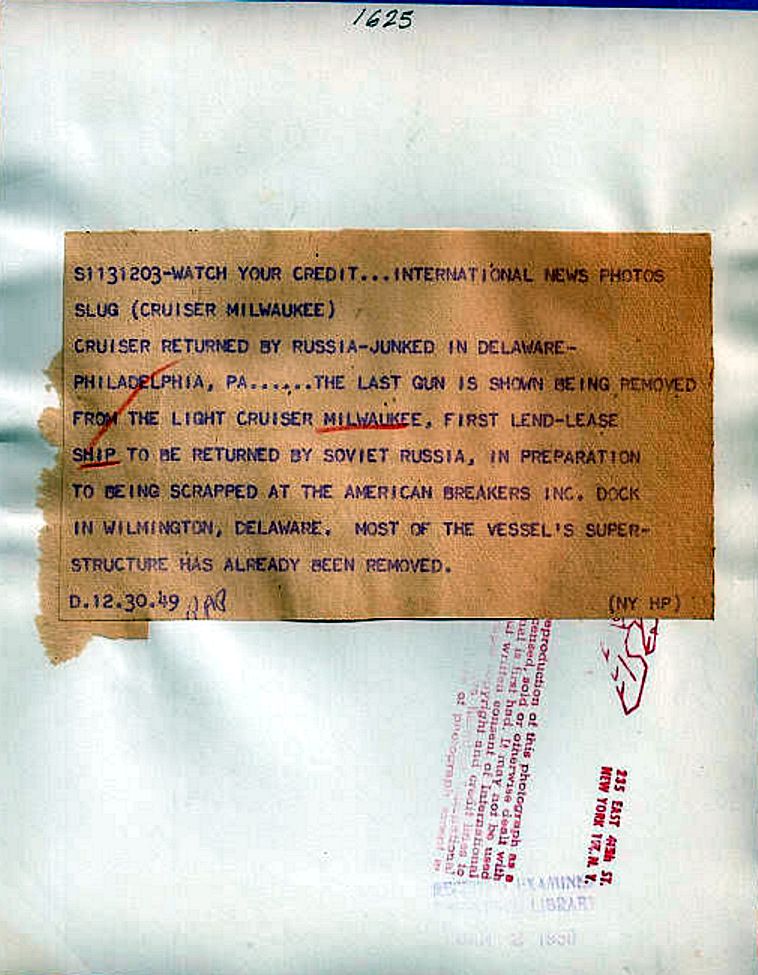 1625
S1131203-WATCH YOUR CREDIT...INTERNATIONAL NEWS PHOTOS
SLUG (CRUISER MILWAUKEE)
CRUISER RETURNED BY RUSSIA-JUNKED IN DELAWARE-
PHILADELPHIA, PA......THE LAST GUN IS SHOWN BEING REMOVED
FROM THE LIGHT CRUISER MILWAUKEE, FIRST LEND-LEASE
SHIP TO BE RETURNED BY SOVIET RUSSIA, IN PREPARATION
TO BEING SCRAPPED AT THE AMERICAN BREAKERS INC. DOCK
IN WILMINGTON, DELAWARE. MOST OF THE VESSEL'S SUPER-
STRUCTURE HAS ALREADY BEEN REMOVED.
D.12.30.49
(NY HP)
reproduction of this photograph as a
censed, sold or otherwise dealt with
is first had. It may not be used
written consent of International
copyright and credit lines to
of photograph
235 EAST 45th ST.
NEW YORK 17, N. Y.
LIBRARY